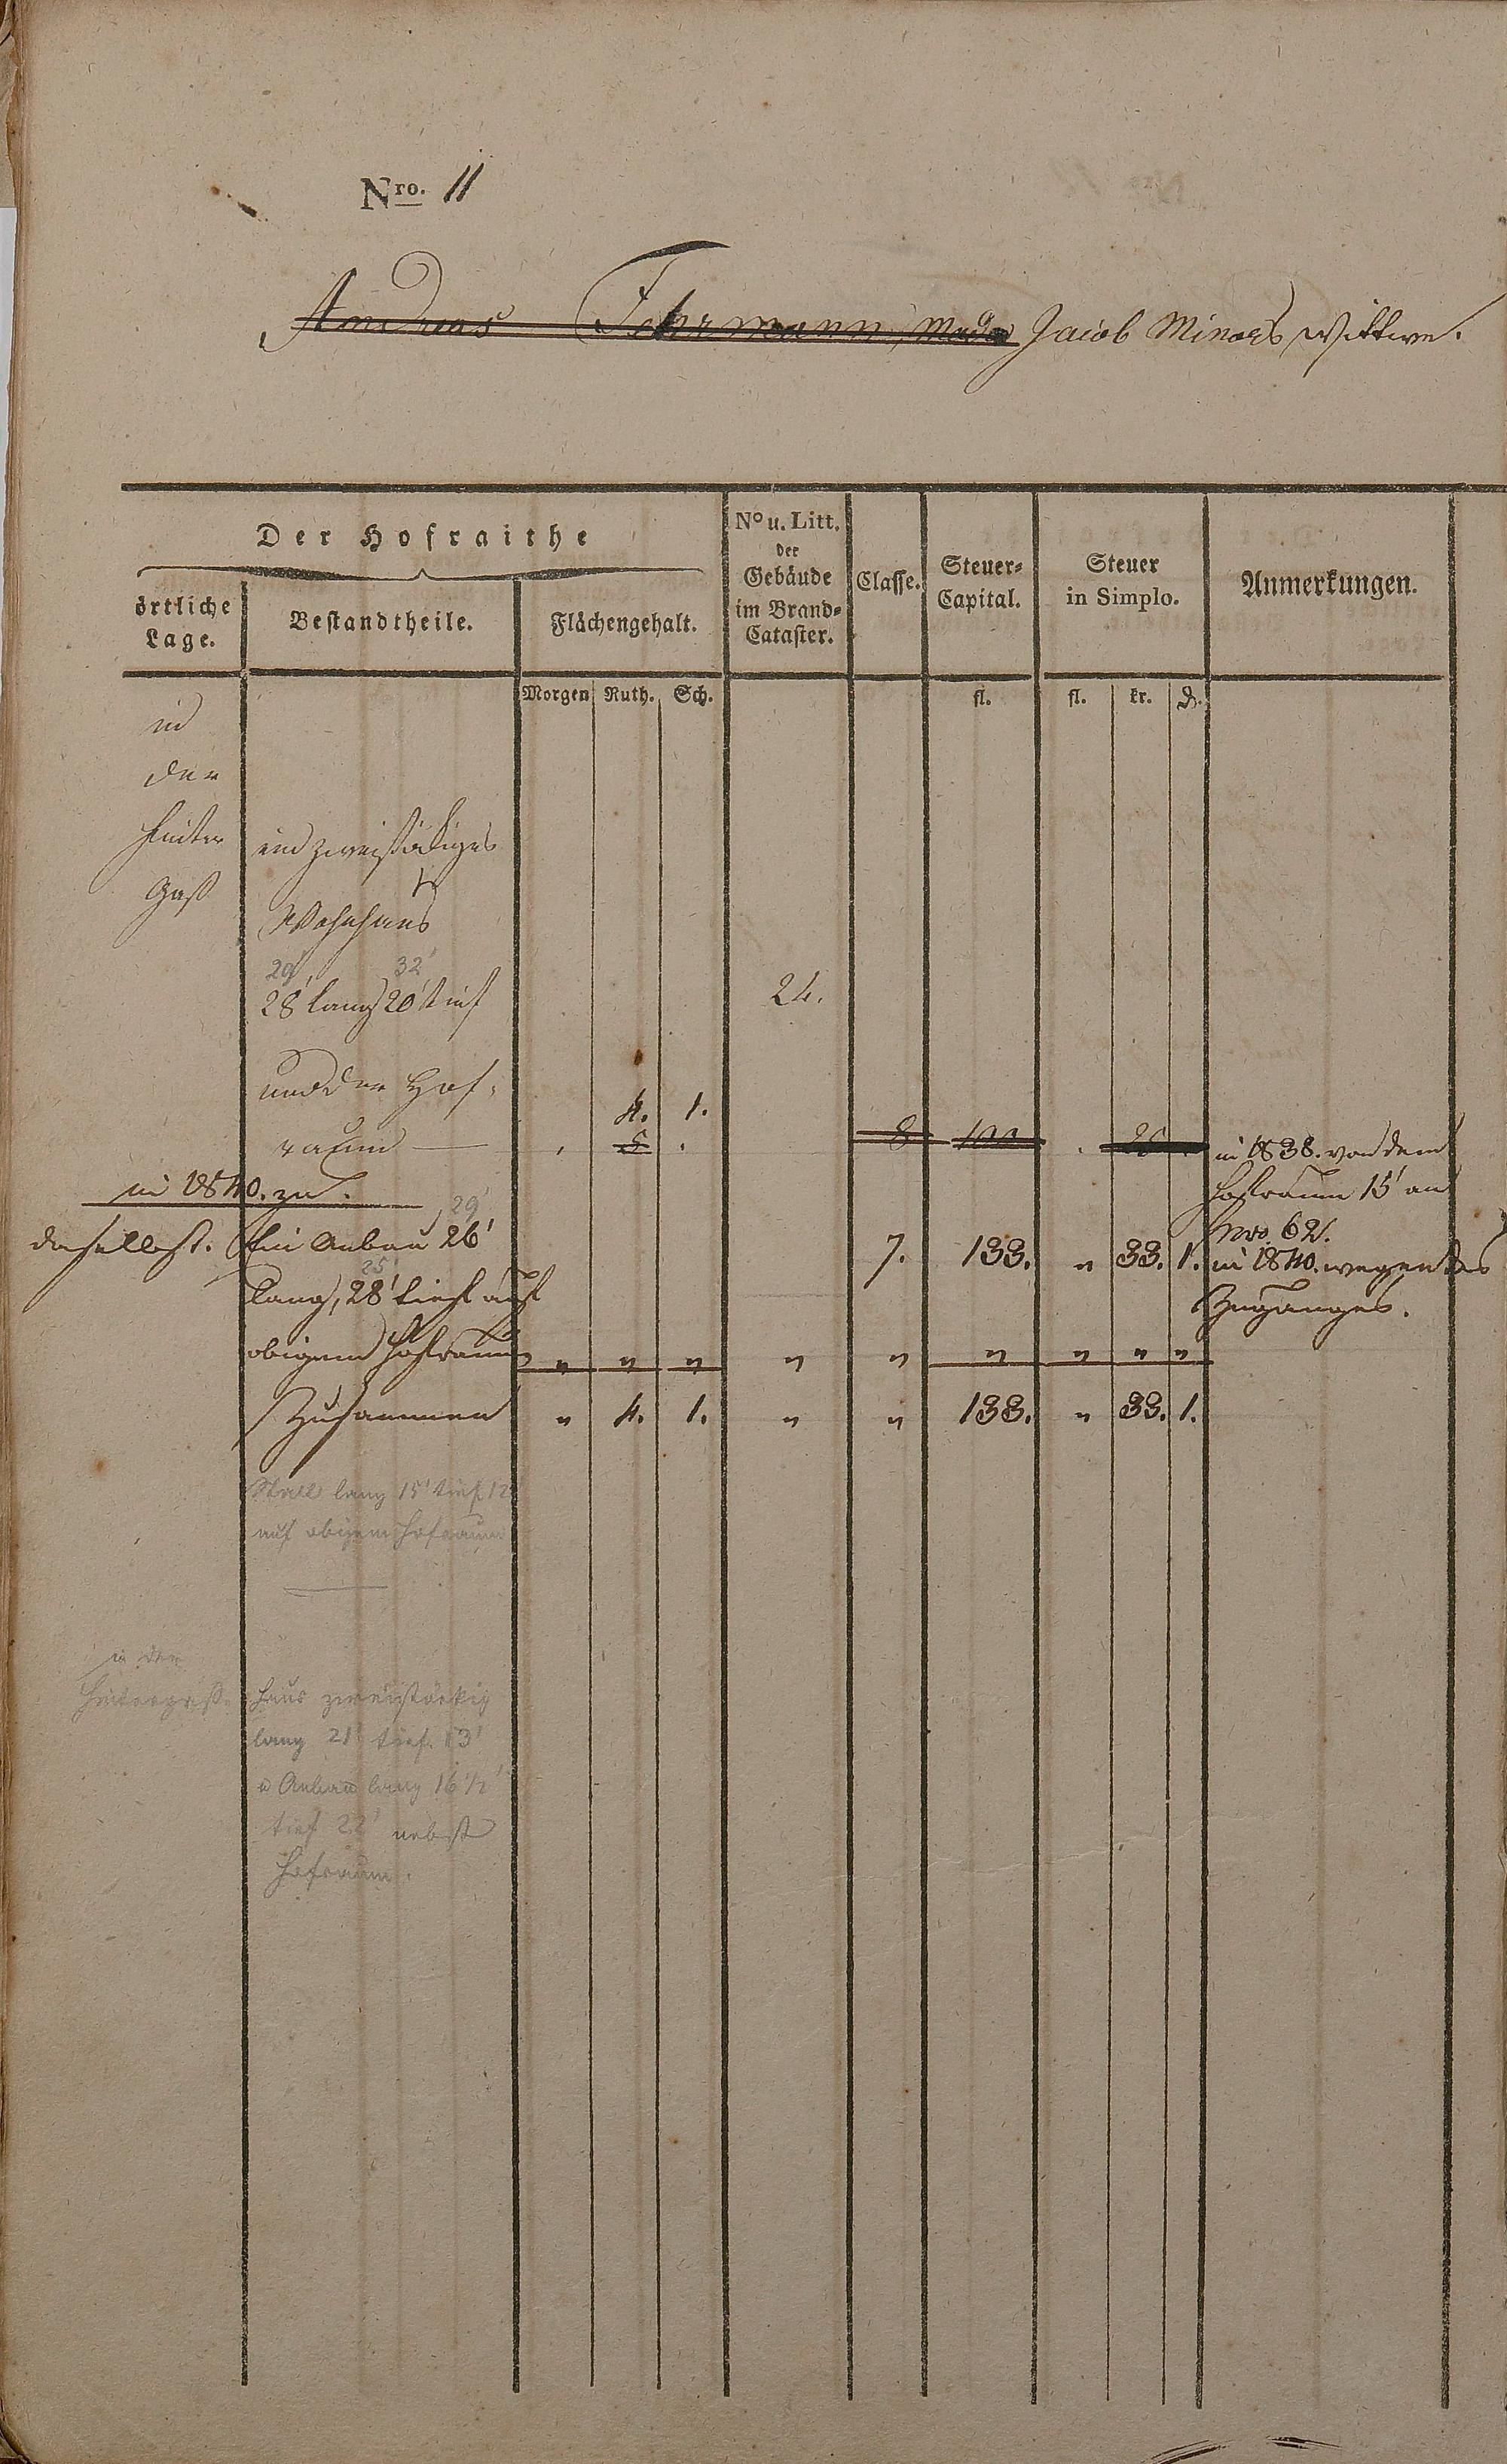 Nro. 11
Andreas Fehrmann, modo Jacob Minors Wittwe.
Der Hofraithe
örtliche Lage.
Bestandtheile.
Flächengehalt.
No u. Litt. der Gebäude im Brand-Cataster.
Classe.
Steuer-Capital.
Steuer in Simplo.
Anmerkungen.
Morgen Ruth. Sch. fl. fl. kr. d.
in
der
hinter ein zweistökiges
Gaß Wohnhaus
29' 32'
28' lang 20' tief 24.
und der Hof-
4. 1.
raum — 5 . 8 100 . 25 in 1838. von dem
in 1840. zu. Hofraum 15' an
29' Nro. 62.
daselbst. Ein Anbau 26' 7. 133. " 33. 1. in 1840. wegen des
25'
lang, 28' tief auf Zuganges.
obigem Hofraum " " " " " " " " "
Zusammen " 4. 1. " " 133. " 33. 1.
Stall lang 15' tief 12'
auf obigem Hofraum
in der
Hintergasse Haus zweistöckig
lang 21' tief 13'
u Anbau lang 16 1/2'
tief 22' nebst
Hofraum.